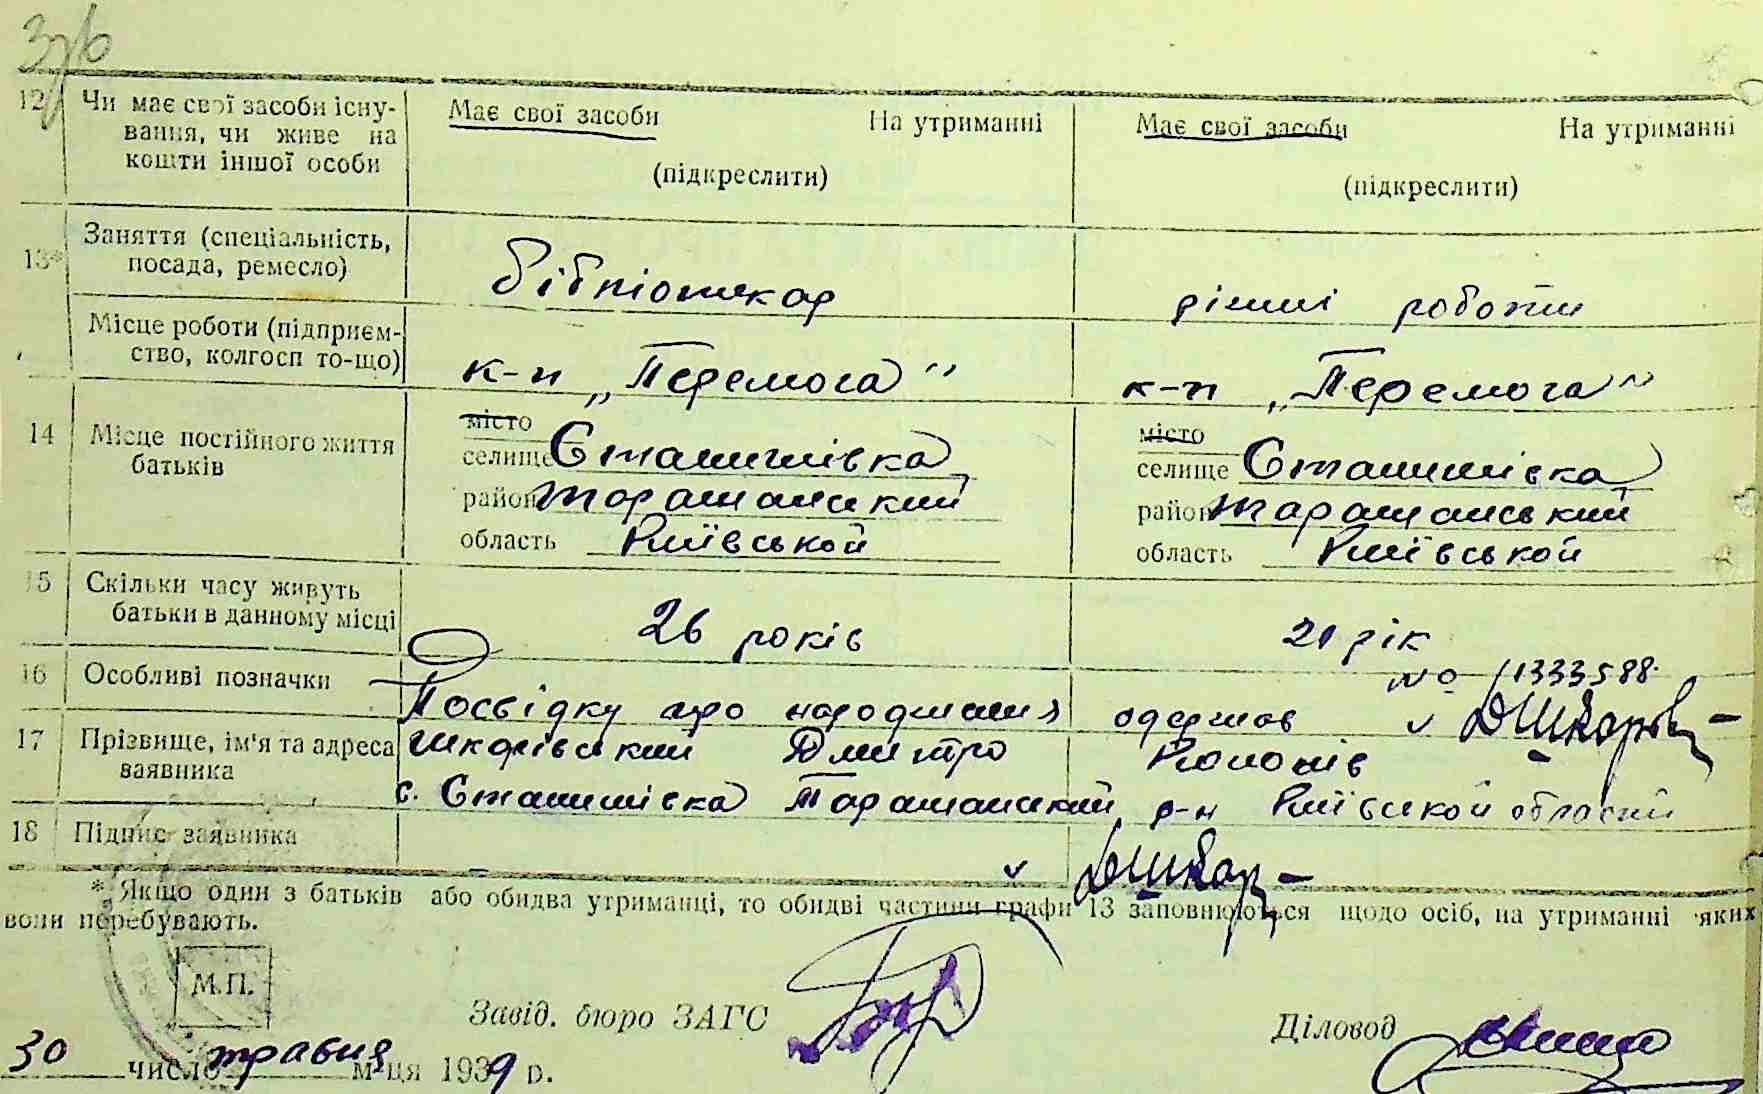 376
12 Чи має свої засоби існу- Має свої засоби На утриманні Має свої засоби На утриманні
вання, чи живе на
кошти іншої особи (підкреслити) (підкреслити)
13* Заняття (спеціальність,
посада, ремесло) бібліотекар різниі роботи
Місце роботи (підприєм-
ство, колгосп то-що) к-п „Перемога" к-п „Перемога"
14 Місце постійного життя
батьків
місто місто
селище Станишівка селище Станишівка
район Таращанский район Таращанський
область Київської область Київської
15 Скільки часу живуть
батьки в данному місці 26 років 21 рік
16 Особливі позначки № 1333588.
Посвідку про народження одержав
17 Прізвище, ім'я та адреса Шкарівський Дмитро
заявника с. Станишівка Таращанский р-н Київської області
18 Підпис заявника
* Якщо один з батьків або обидва утриманці, то обидві частини графи 13 заповнюються щодо осіб, на утриманні яких
вони перебувають.
М.П.
Завід. бюро ЗАГС Діловод
30 число травня м-ця 1939 р.